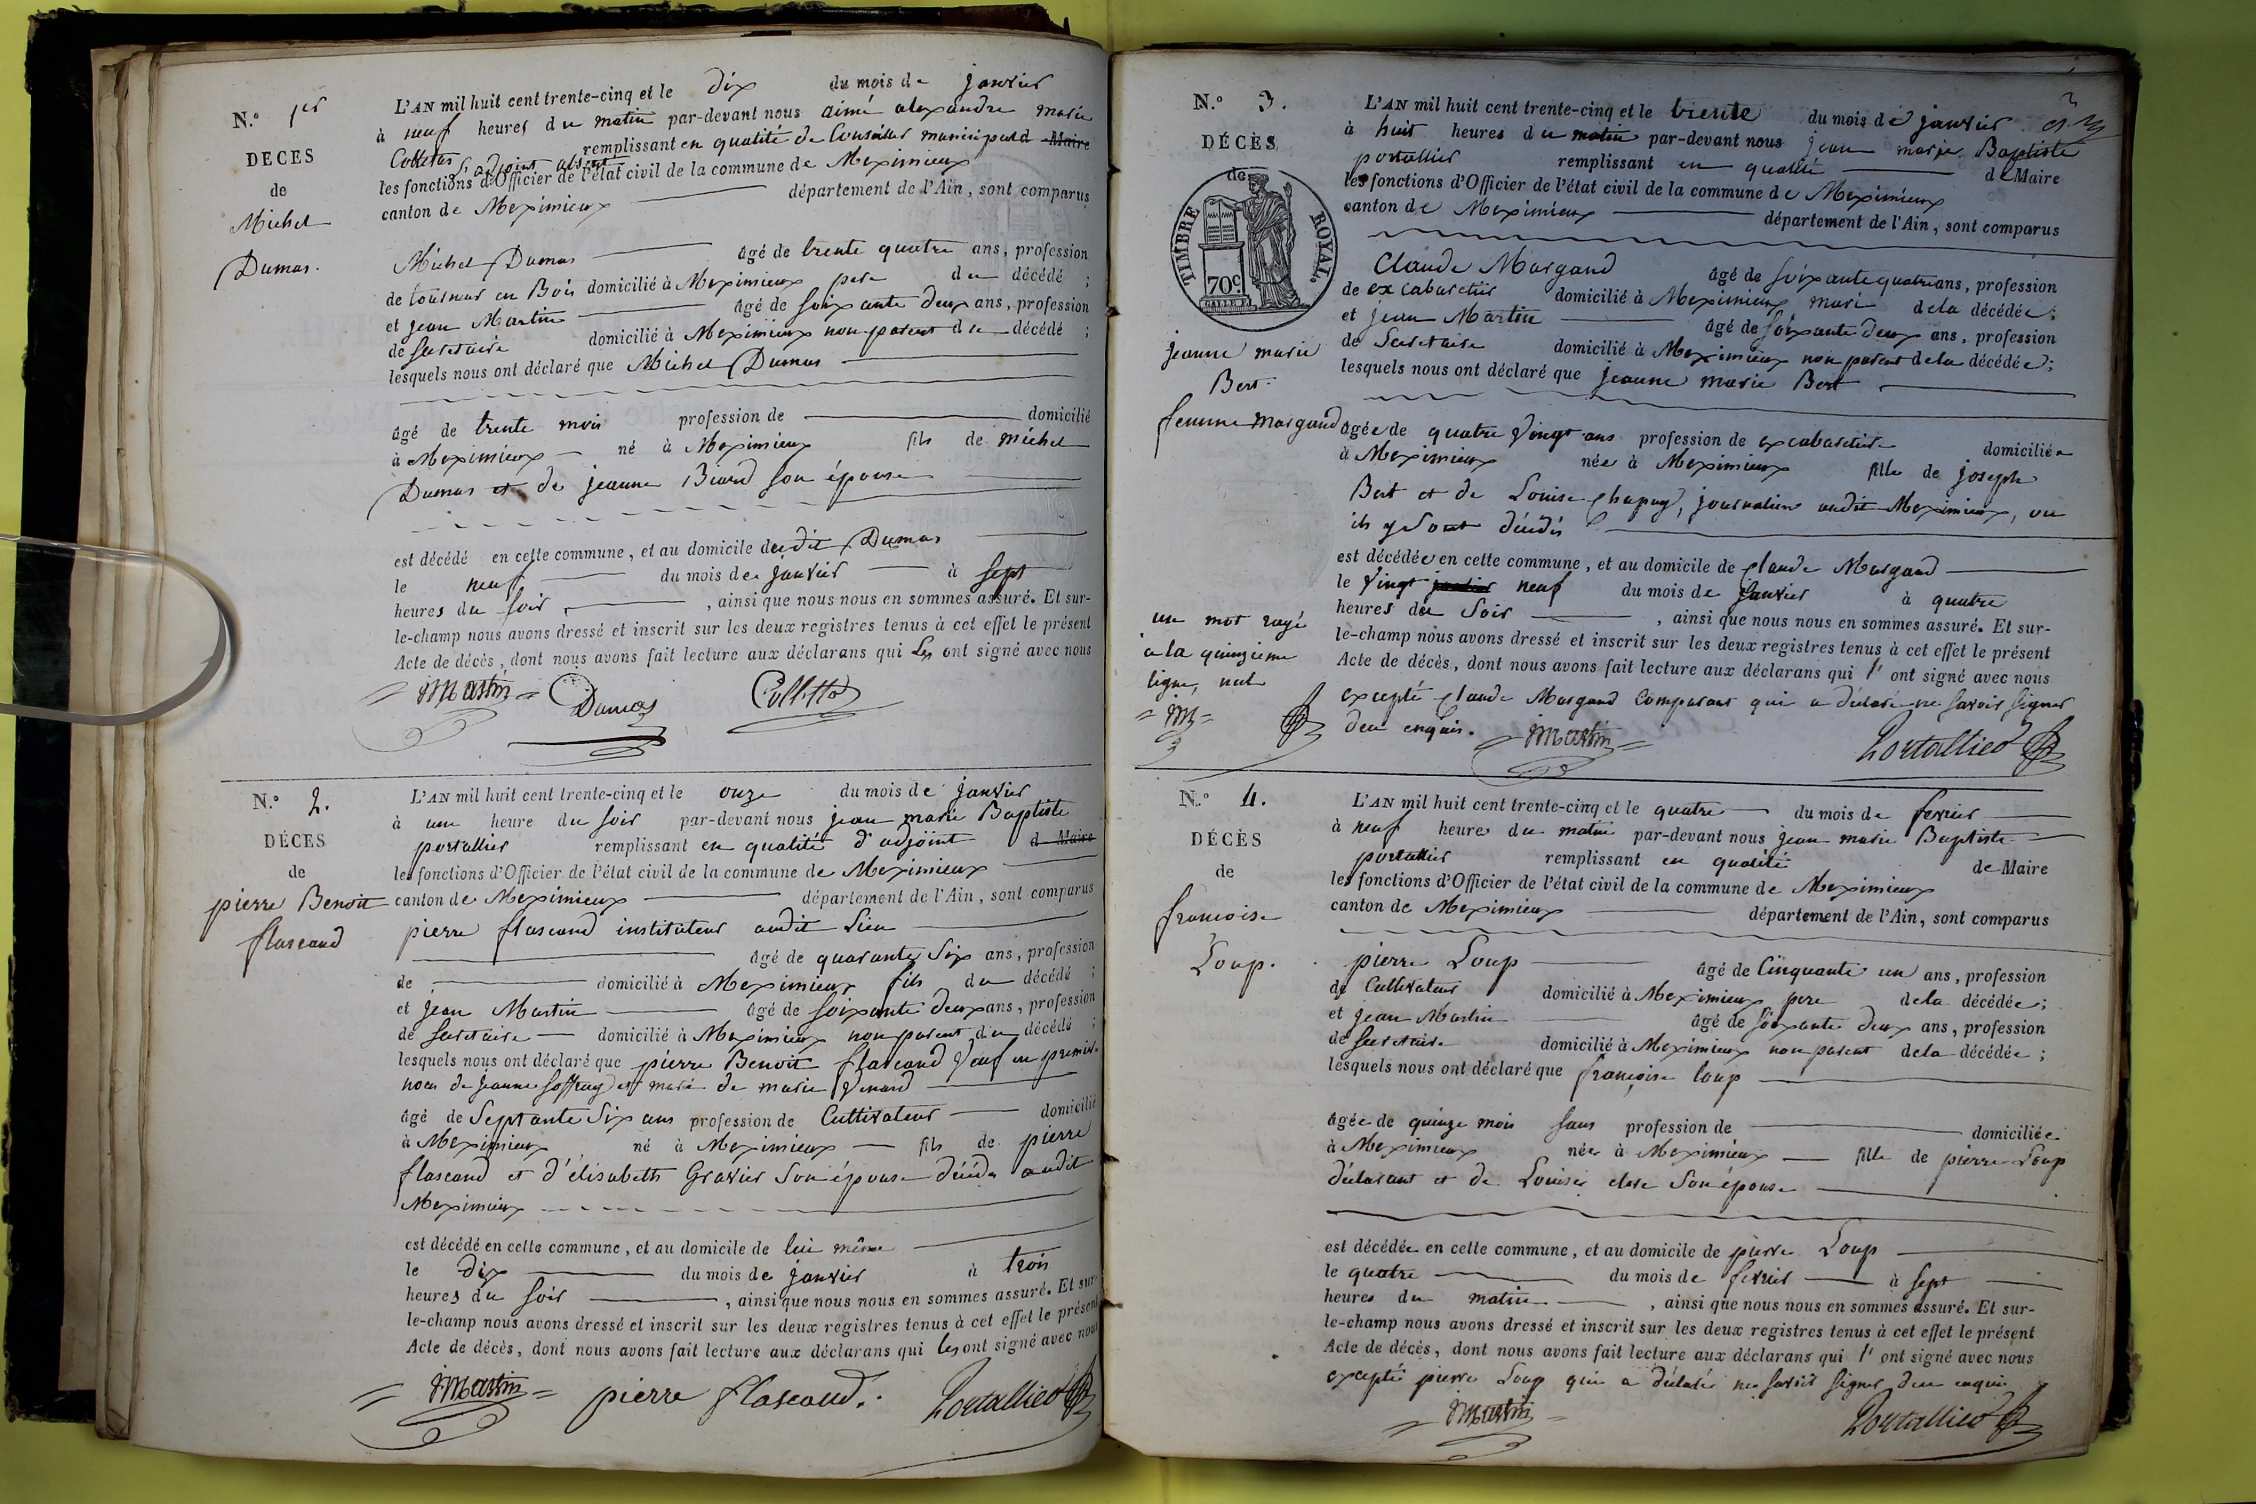 N.° 1er
DÉCES
de
Michel
Dumas.
L'AN mil huit cent trente-cinq et le dix du mois de janvier
à neuf heures du matin par-devant nous aimé alexandre marie
Colletas remplissant en qualité de Conseiller municipal d Maire
l'adjoint absent
les fonctions d'Officier de l'état civil de la commune de Meximieux
canton de Meximieux département de l'Ain, sont comparus
Michel Dumas âgé de trente quatre ans, profession
de tourneur en Bois domicilié à Meximieux pere du décédé ;
et jean Martin âgé de soixante deux ans, profession
de secretaire domicilié à Meximieux non parent du décédé ;
lesquels nous ont déclaré que Michel Dumas
âgé de trente mois profession de domicilié
à Meximieux né à Meximieux fils de michel
Dumas et de jeanne Biard son épouse
est décédé en cette commune, et au domicile dudit Dumas
le neuf du mois de janvier à sept
heures du soir , ainsi que nous nous en sommes assuré. Et sur-
le-champ nous avons dressé et inscrit sur les deux registres tenus à cet effet le présent
Acte de décès, dont nous avons fait lecture aux déclarans qui les ont signé avec nous
= JMartin = Dumas Colletta
N.° 2.
DÉCES
de
pierre Benoit
flascaud
L'AN mil huit cent trente-cinq et le onze du mois de janvier
à une heure du soir par-devant nous jean marie Baptiste
portallier remplissant en qualité d'adjoint d Maire
les fonctions d'Officier de l'état civil de la commune de Meximieux
canton de Meximieux département de l'Ain, sont comparus
pierre flascaud instituteur audit Lieu
âgé de quarante six ans, profession
de domicilié à Meximieux fils du décédé ;
et jean Martin âgé de soixante deux ans, profession
de secretaire domicilié à Meximieux non parent du décédé ;
lesquels nous ont déclaré que pierre Benoit flascaud veuf en premier
noces de jeanne soffray et mari de marie Venard
âgé de Septante Six ans profession de Cultivateur domicilié
à Meximieux né à Meximieux fils de pierre
flascaud et d'élisabeth Gravier Son épouse décédés audit
Meximieux
est décédé en cette commune, et au domicile de lui même
le dix du mois de janvier à trois
heures du soir , ainsi que nous nous en sommes assuré. Et sur-
le-champ nous avons dressé et inscrit sur les deux registres tenus à cet effet le présent
Acte de décès, dont nous avons fait lecture aux déclarans qui les ont signé avec nous
= JMartin = pierre flascaud. Portallier
N.° 3.
DÉCÈS
de
TIMBRE ROYAL.
70c
jeanne marie
Bert.
femme Margand
un mot rayé
à la quinzieme
ligne, nul
= JM =
L'AN mil huit cent trente-cinq et le trente du mois de janvier
à huit heures du matin par-devant nous jean marie Baptiste
portallier remplissant en qualité de Maire
les fonctions d'Officier de l'état civil de la commune de Meximieux
canton de Meximieux département de l'Ain, sont comparus
Claude Margand âgé de soixante quatre ans, profession
de ex cabaretier domicilié à Meximieux mari de la décédée ;
et jean Martin âgé de soixante deux ans, profession
de Secretaire domicilié à Meximieux non parent de la décédée ;
lesquels nous ont déclaré que jeanne marie Bert
âgée de quatre vingt ans profession de ex cabaretiere domiciliée
à Meximieux née à Meximieux fille de joseph
Bert et de Louise Chapuy, journaliers audit Meximieux, ou
ils y sont décédés
est décédée en cette commune, et au domicile de Claude Margand
le Vingt janvier neuf du mois de janvier à quatre
heures du Soir , ainsi que nous nous en sommes assuré. Et sur-
le-champ nous avons dressé et inscrit sur les deux registres tenus à cet effet le présent
Acte de décès, dont nous avons fait lecture aux déclarans qui l' ont signé avec nous
excepté Claude Margand Comparant qui a déclaré ne savoir signer
deu enquis. = JMartin = Portallier
N.° 4.
DÉCÈS
de
francoise
Loup.
L'AN mil huit cent trente-cinq et le quatre du mois de fevrier
à neuf heures du matin par-devant nous jean marie Baptiste
portallier remplissant en qualité de Maire
les fonctions d'Officier de l'état civil de la commune de Meximieux
canton de Meximieux département de l'Ain, sont comparus
pierre Loup âgé de Cinquante un ans, profession
de Cultivateur domicilié à Meximieux pere de la décédée ;
et jean Martin âgé de soixante deux ans, profession
de secretaire domicilié à Meximieux non parent de la décédée ;
lesquels nous ont déclaré que françoise loup
âgée de quinze mois sans profession de domiciliée
à Meximieux née à Meximieux fille de pierre Loup
déclarant et de Louise clere Son épouse
est décédée en cette commune, et au domicile de pierre Loup
le quatre du mois de fevrier à sept
heures du matin , ainsi que nous nous en sommes assuré. Et sur-
le-champ nous avons dressé et inscrit sur les deux registres tenus à cet effet le présent
Acte de décès, dont nous avons fait lecture aux déclarans qui l' ont signé avec nous
excepté pierre Loup qui a déclaré ne savoir signer deu enquis
= JMartin = Portallier